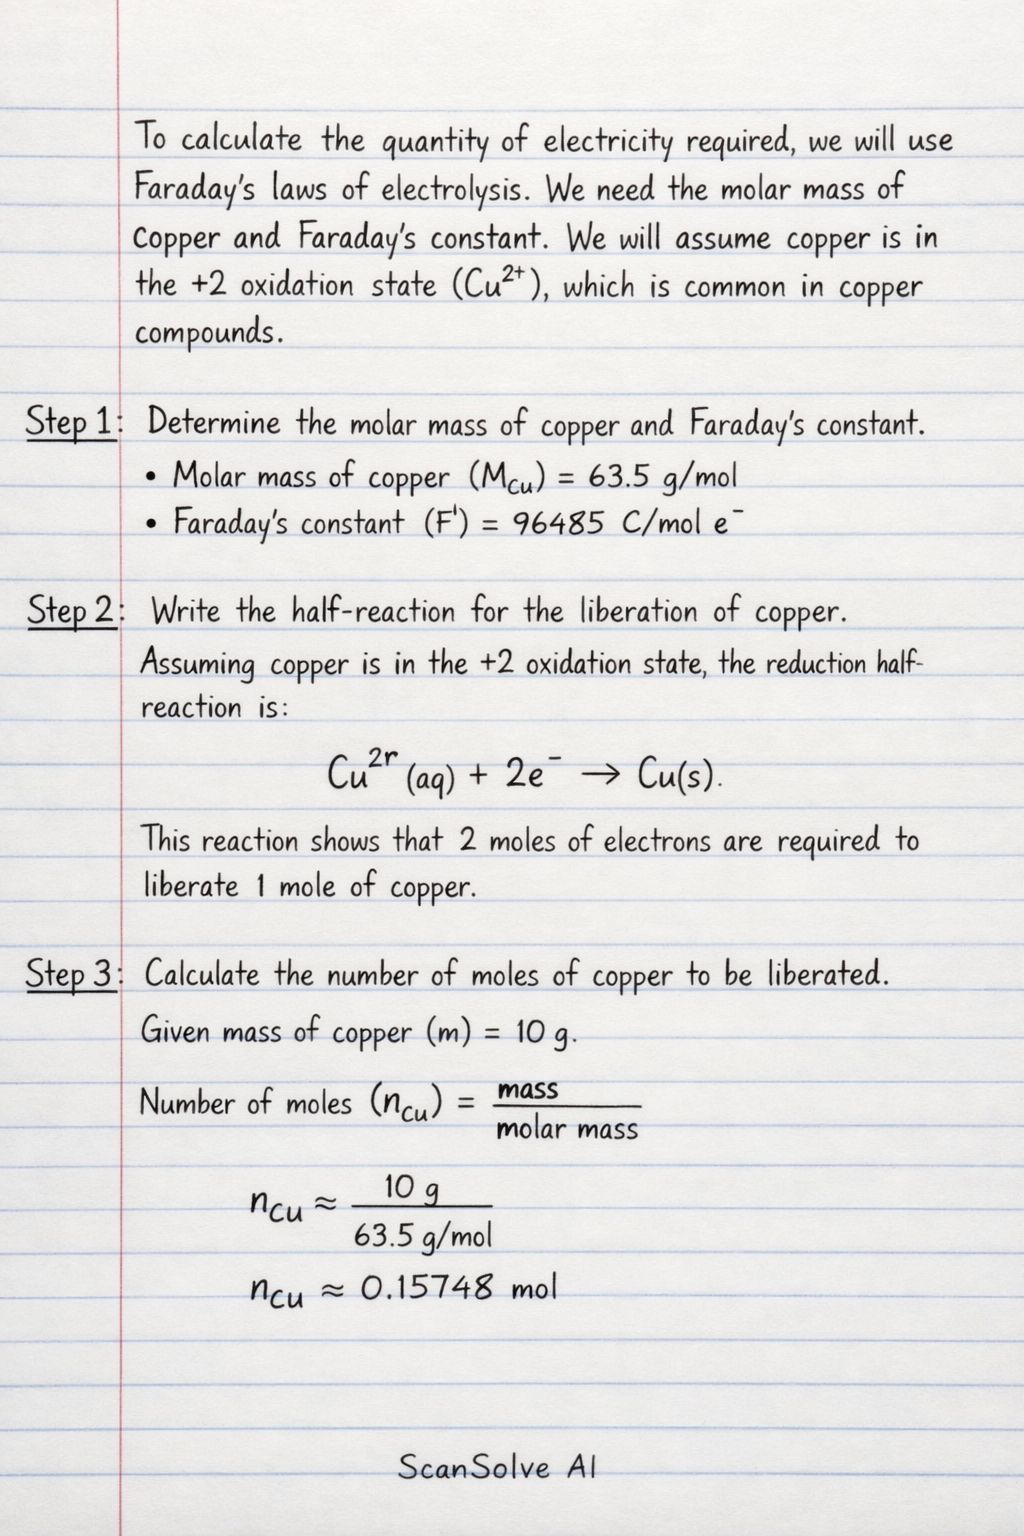 To calculate the quantity of electricity required, we will use
Faraday's laws of electrolysis. We need the molar mass of
copper and Faraday's constant. We will assume copper is in
the +2 oxidation state (Cu²⁺), which is common in copper
compounds.
Step 1: Determine the molar mass of copper and Faraday's constant.
• Molar mass of copper (M_Cu) = 63.5 g/mol
• Faraday's constant (F') = 96485 C/mol e⁻
Step 2: Write the half-reaction for the liberation of copper.
Assuming copper is in the +2 oxidation state, the reduction half-
reaction is:
Cu²ʳ (aq) + 2e⁻ → Cu(s).
This reaction shows that 2 moles of electrons are required to
liberate 1 mole of copper.
Step 3: Calculate the number of moles of copper to be liberated.
Given mass of copper (m) = 10 g.
Number of moles (n_Cu) = mass
molar mass
n_Cu ≈ 10 g
63.5 g/mol
n_Cu ≈ 0.15748 mol
ScanSolve AI